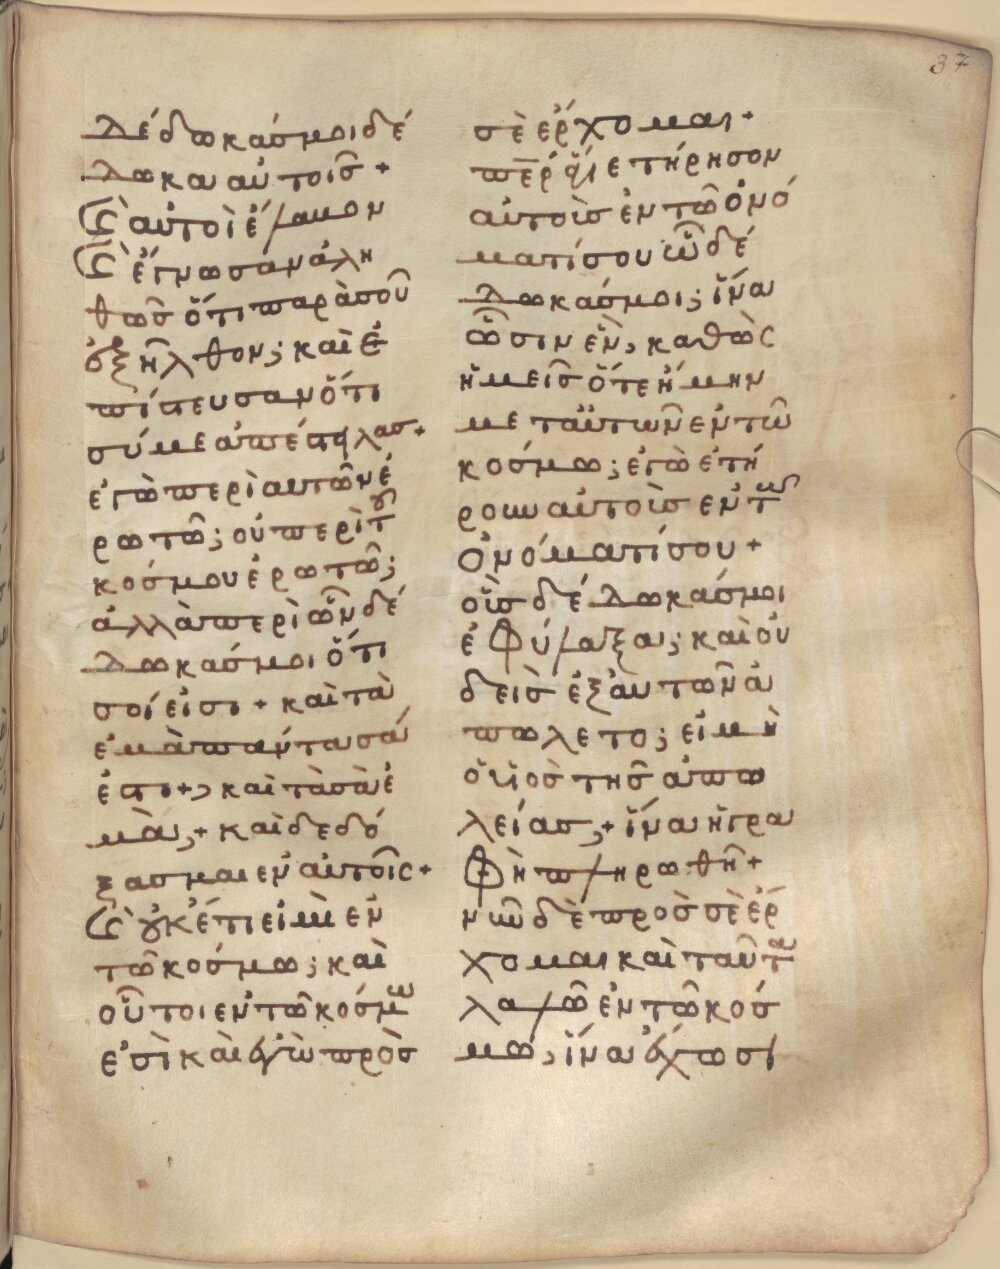 37
λέδωκάσμοιδέ
λωκα αὐτοῖς +
κ(αὶ) αὐτοὶ ἔλαμον
κ(αὶ) ἔγνωσαν ἀλη
θῶς ὅτι παρὰ σοῦ
ἐξῆλθον; καὶ ἐ
πίστευσαν ὅτι
σύ με ἀπέστειλας +
ἐγὼ περὶ αὐτῶν ἐ
ρωτῶ; οὐ περὶ τοῦ
κόσμου ἐρωτῶ;
ἀλλὰ περὶ ὧν δέ
λωκάσμοι ὅτι
σοί εἰσι + καὶ τὰ
ἐμὰ πάντα σά
ἐστι + καὶ τὰ σὰ ἐ
μὰ, + καὶ δεδό
ξασμαι ἐν αὐτοῖς +
κ(αὶ) οὐκέτι εἰμὶ ἐν
τῶ κόσμω; καὶ
οὗτοι ἐν τῶ κόσμω
εἰσὶ καὶ ἐγὼ πρὸς
σὲ ἔρχομαι +
π̅ε̅ρ ἅγιε τήρησον
αὐτοὺς ἐν τῶ ὀνό
ματί σου ὧ δέ
λωκάσμοι; ἵνα
ὦσιν ἓν, καθὼς
ἡμεῖς ὅτε ἤμην
μετ αὐτῶν ἐν τῶ
κόσμω; ἐγὼ ἐτή
ρουν αὐτοὺς ἐν τῶ
ὀνόματί σου +
οὓς δέλωκάσμοι
ἐφύλαξα; καὶ οὐ
δεὶς ἐξ αὐτῶν ἀ
πώλετο; εἰ μὴ
ὁ υἱὸς τῆς ἀπω
λείας, + ἵνα ἡ γρα
φὴ πληρωθῆ +
νῦν δὲ πρὸς σὲ ἔρ
χομαι καὶ ταῦτα
λαλῶ ἐν τῶ κόσ
μω, ἵνα ἔχωσι